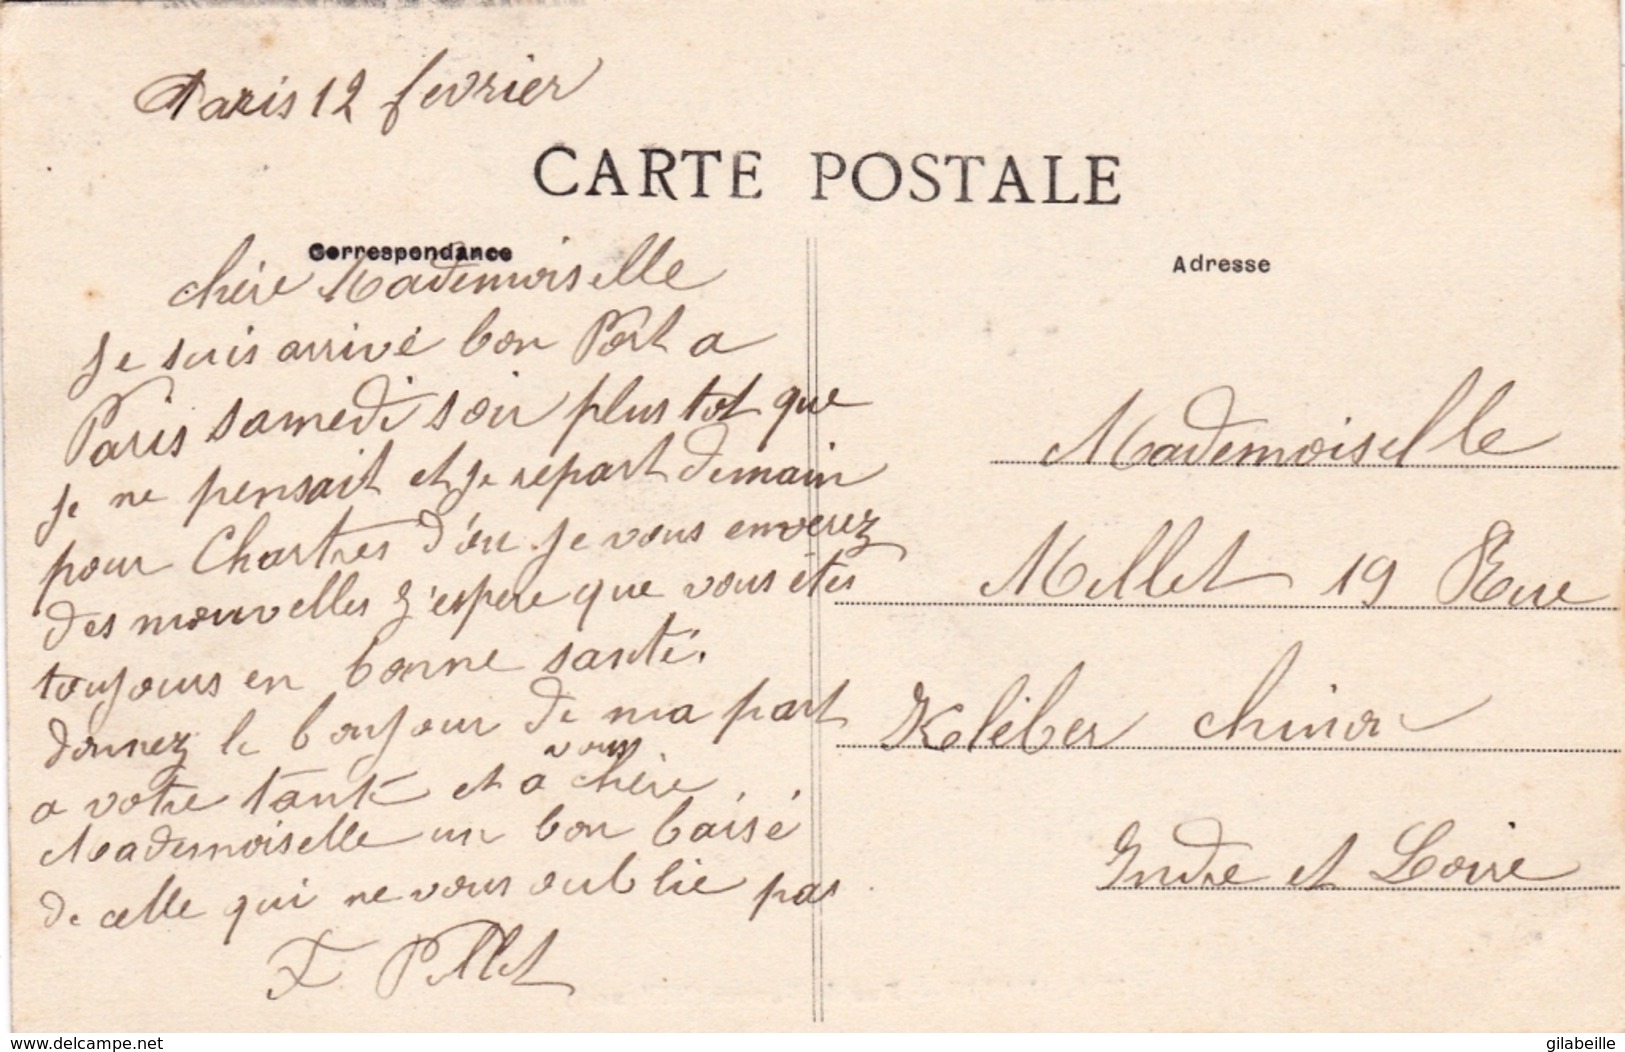 Paris 12 fevrier
CARTE POSTALE
Correspondance
chère Mademoiselle
je suis arrivé bon Port a
Paris samedi soir plus tot que
je ne pensait et je repart demain
pour Chartres d'ou je vous enverez
des nouvelles j'espere que vous etes
toujours en bonne santé.
donnez le bonjour de ma part
a votre tante et a vous chère
Mademoiselle un bon baisé
de celle qui ne vous oublie pas
F Pillet
Adresse
Mademoiselle
Millet 19 Rue
Kléber chinon
Indre et Loire
www.delcampe.net
gilabeille